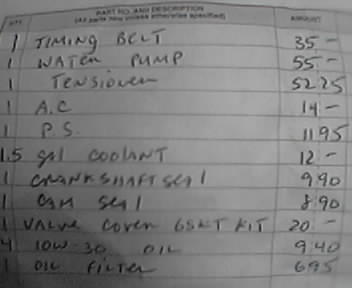 QTY. PART NO. AND DESCRIPTION AMOUNT
(All parts new unless otherwise specified)
1 TIMING BELT 35 -
1 WATER PUMP 55 -
1 TENSIONER 52 25
1 A.C 14 -
1 P.S. 11 95
1.5 gal COOLANT 12 -
1 CRANKSHAFT SEAL 9 90
1 CAM SEAL 8 90
1 VALVE COVER GSKT KIT 20 -
4 10W-30 OIL 9 40
1 OIL FILTER 6 95